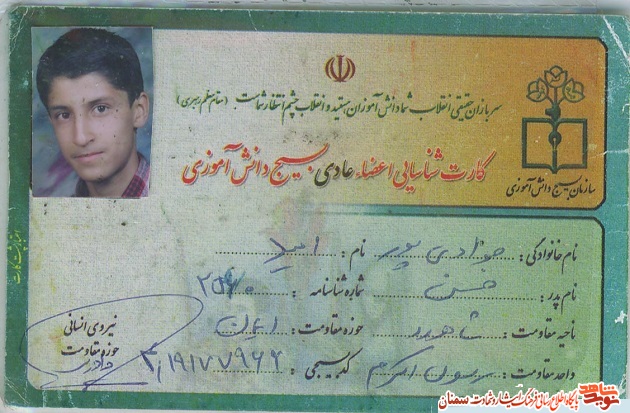 سربازان حقیقی انقلاب شما دانش آموزان هستید و انقلاب چشم انتظار شماست (مقام معظم رهبری)
کارت شناسایی اعضاء عادی بسیج دانش آموزی
سازمان بسیج دانش آموزی
نام خانوادگی: جوادی پور نام: امید
نام پدر: حسن شماره شناسنامه: ۲۵۶۰
ناحیه مقاومت: شاهرود حوزه مقاومت: ایمان
واحد مقاومت: رسول اکرم کد بسیجی: ۳,۱۹۱۷۷۹۶۲
نیروی انسانی
حوزه مقاومت
اعتبار پشت کارت
نوید شاهد
پایگاه اطلاع رسانی فرهنگ ایثار و شهادت سمنان